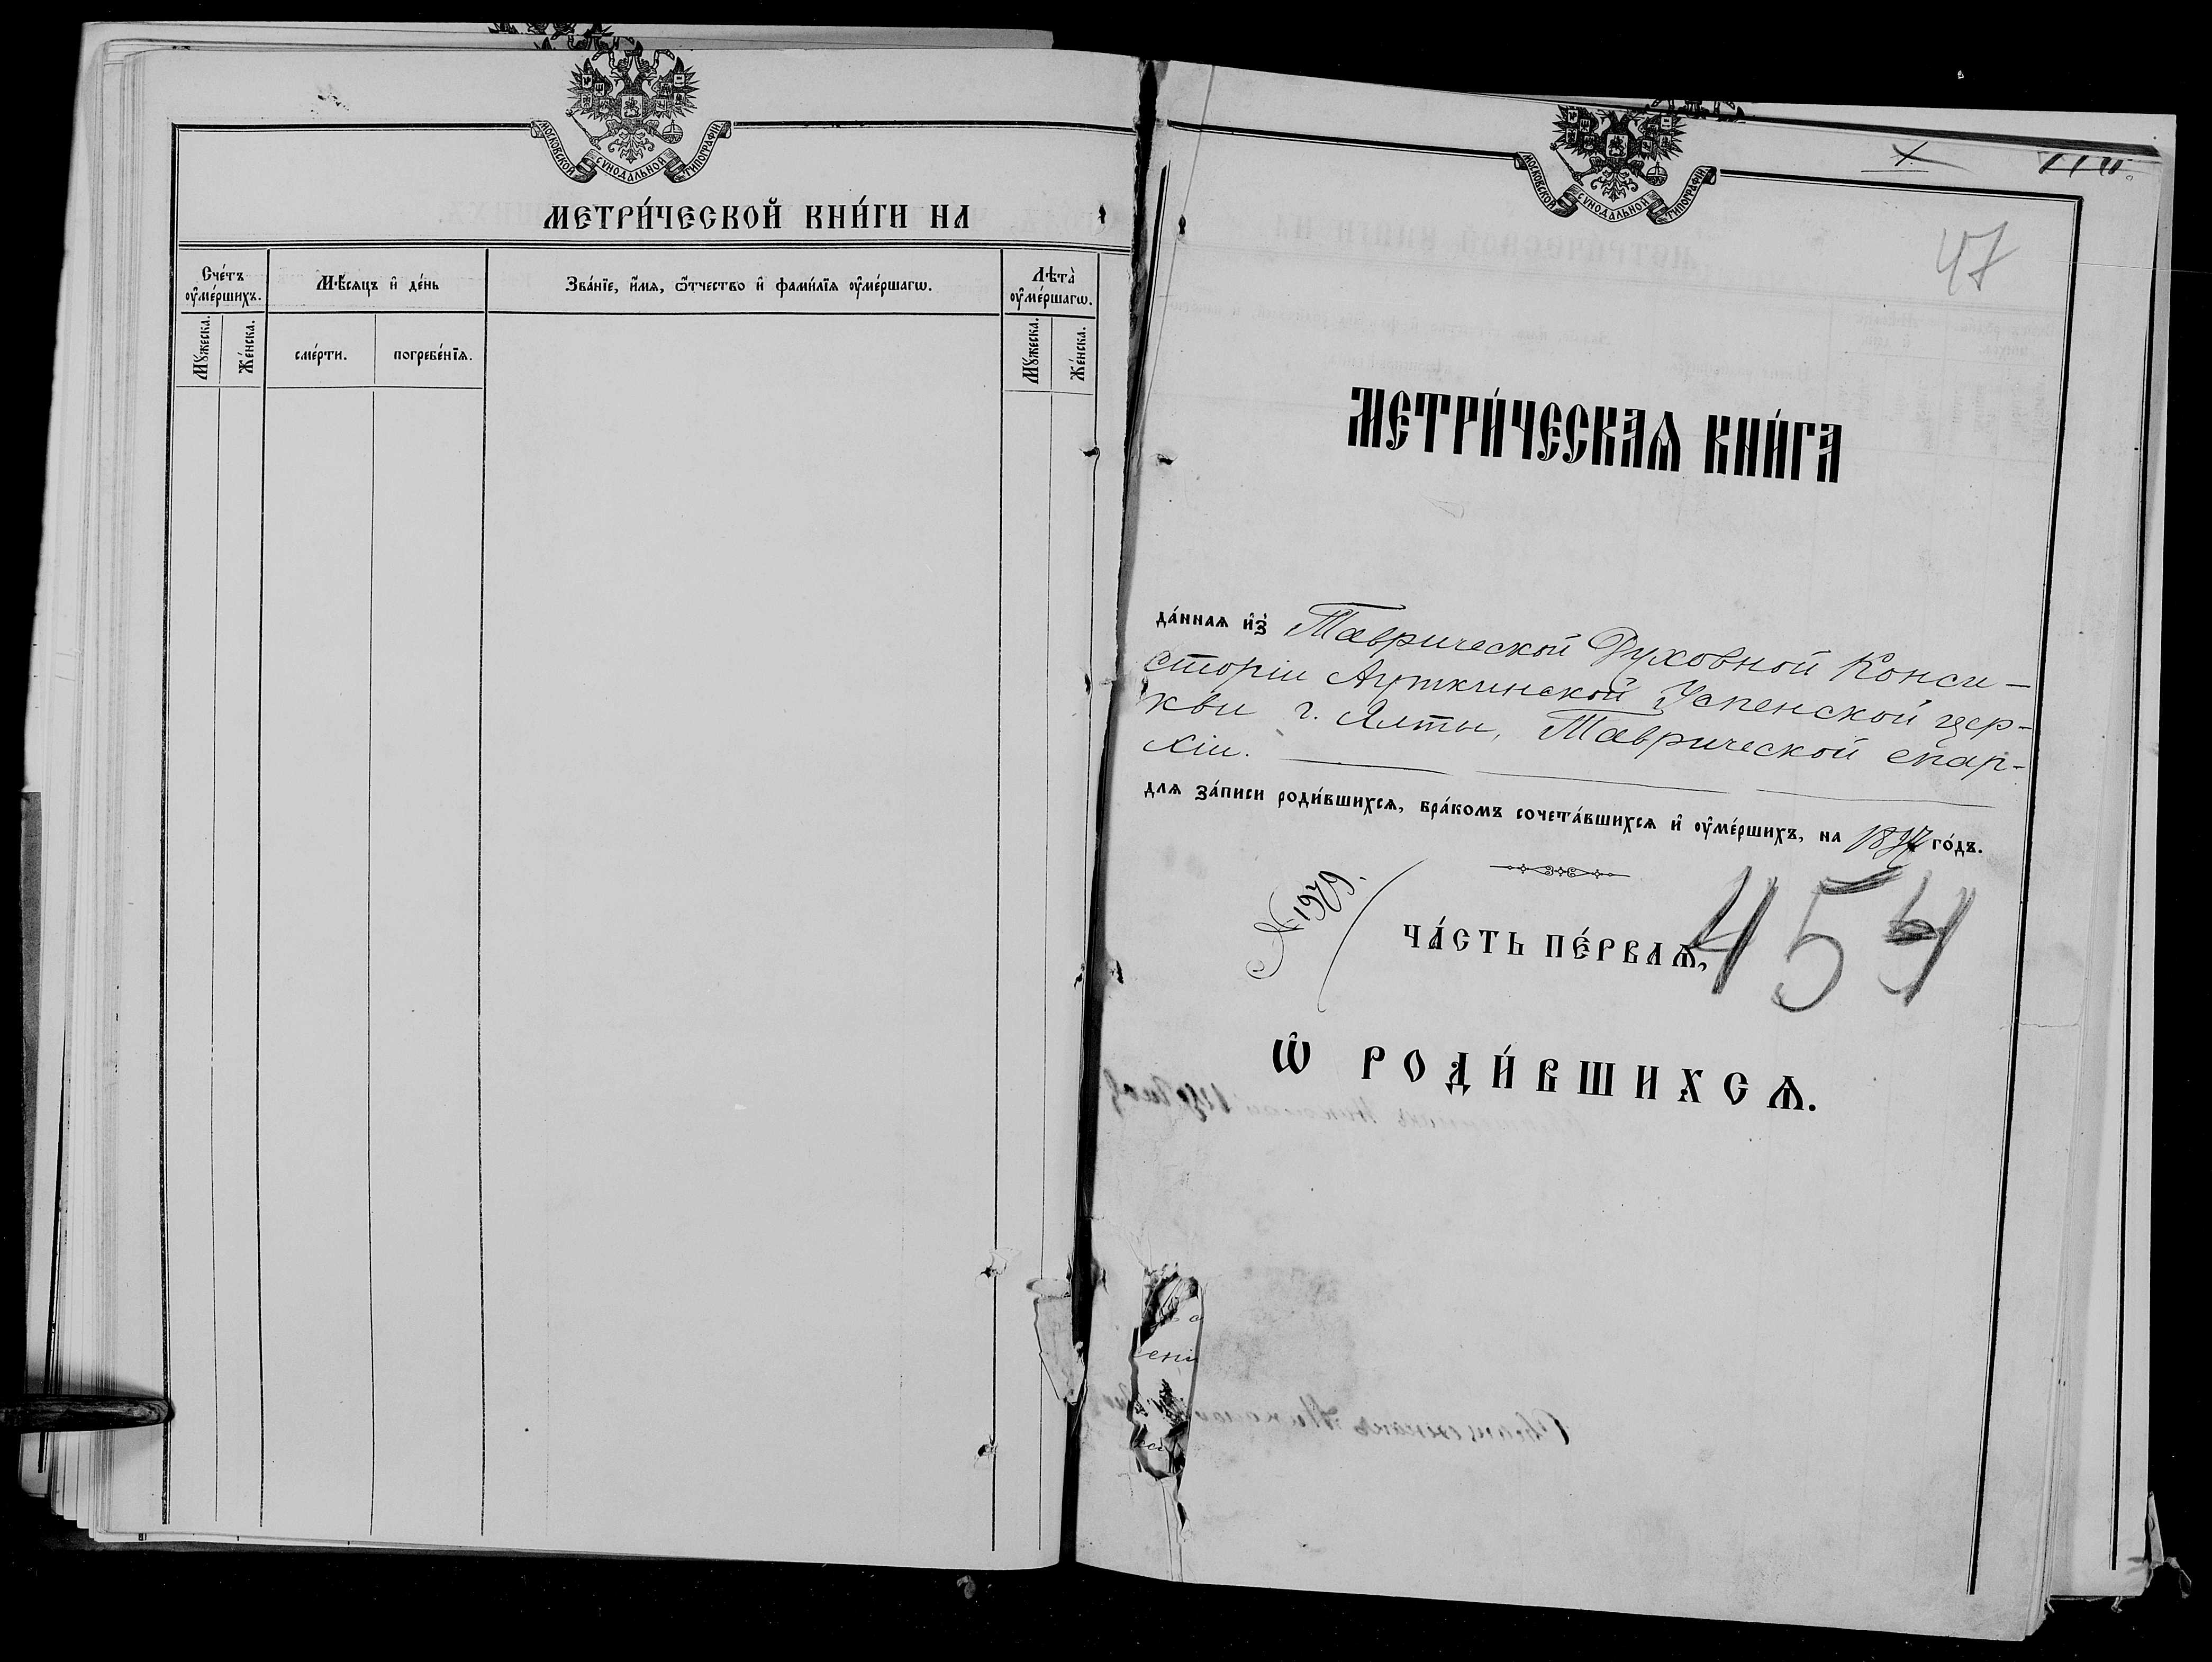 МОСКОВСКОЙ СѴНОДАЛЬНОЙ ТИПОГРАФІИ
МЕТРИ́ЧЕСКОЙ КНИ́ГИ НА
Сче́тъ оу҆ме́ршихъ.
Мѣ́сяцъ и҆ де́нь
Зва́нїе, и҆́мя, ѻ҆́тчество и҆ фами́лїя оу҆ме́ршагѡ.
Лѣта̀ оу҆ме́ршагѡ.
Мꙋ́жеска.
Же́нска.
сме́рти.
погребе́нїѧ.
Мꙋ́жеска.
Же́нска.
МОСКОВСКОЙ СѴНОДАЛЬНОЙ ТИПОГРАФІИ
47
МЕТРИ́ЧЕСКАѦ КНИ́ГА
да́ннаѧ и҆з̾ Таврической Духовной Конси-
сторіи Ауткинской Успенской цер-
кви г. Ялты, Таврической епар-
хіи.
длѧ за́писи роди́вшихсѧ, бра́комъ сочета́вшихсѧ и҆ оу҆ме́ршихъ, на го́дъ.
№ 1979.
ЧА́СТЬ ПЕ́РВАѦ,
454
Ѡ҆ РОДИ́ВШИХСѦ.